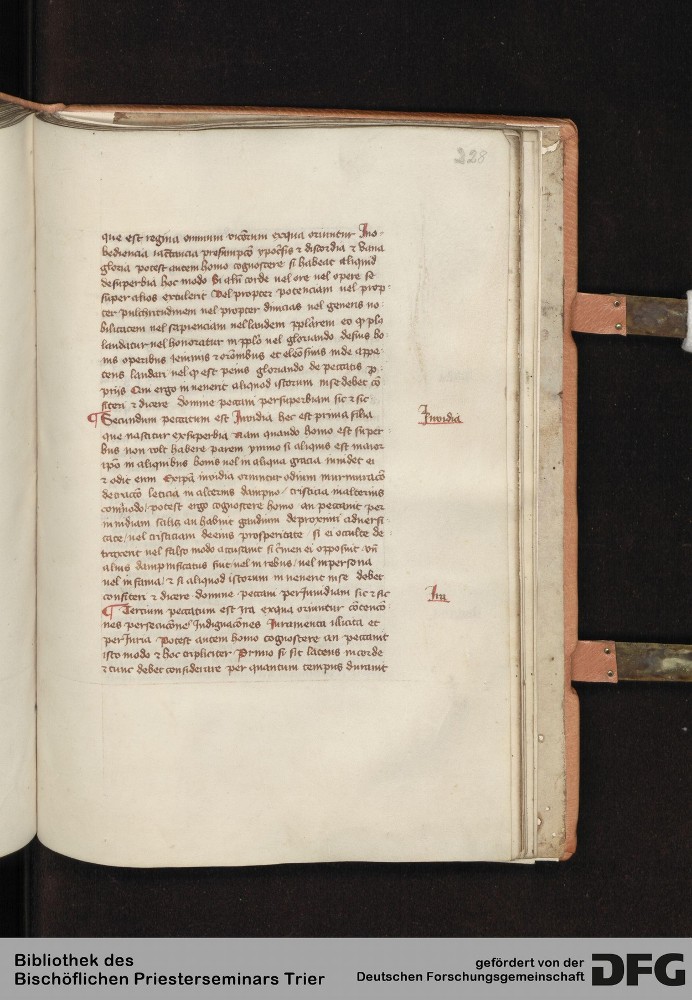 228
que est regina omnium vicorum exqua oriuntur Ino-
bediencia iactancia presumpco ypocrisis & discordia & vana
gloria potest autem homo cognoscere si habeat aliquid
desuperbia hoc modo Si corde uel ore uel opere se
super alios extulerit Vel propter potenciam uel prop-
ter pulchritudinem uel propter diuicias uel generis no-
bilitatem uel sapienciam uel laudem eo q
laudatur uel honoratur in pplo uel gloriando desuis bo-
nis operibus ieiuniis & oronibus et eleosinis inde appe-
tens laudari uel q est peius gloriando de peccatis p-
priis Cum ergo inuenerit aliquod istorum inse debet co-
fiteri & dicere domine peccaui persuperbiam sic & sic
Secundum peccatum est Inuidia hec est prima filia
Inuidia
que nascitur exsuperbia nam quando homo est super-
bus non volt habere parem ymmo si aliquis est maior
ipo in aliquibus bonis uel in aliqua gracia inuidet ei
& odit eum Exipa inuidia oriuntur odium murmuraco
detracco leticia in alterius dampno / tristicia inalterius
comodo / potest ergo cognoscere homo an peccauit per
inuidiam scilicet an habuit gaudium deproximi aduersi-
tate / uel tristiciam deeius prosperitate si ei occulte de-
traxerit uel falso modo accusauit si crimen ei opposuit vn
alius dampnificatus fuit uel in rebus / uel inpersona
uel in fama / & si aliquod istorum inuenerit inse debet
confiteri & dicere domine peccaui perInuidiam sic & sic
Tercium peccatum est Ira exqua oriuntur cotencio-
Ira
nes persecucones Indignacones Iuramenta illicita et
perIuria Potest autem homo cognoscere an peccauit
isto modo & hoc tripliciter Primo si sit latens in corde
& tunc debet considerare per quantum tempus durauit
Bibliothek des
Bischöflichen Priesterseminars Trier
gefördert von der
Deutschen Forschungsgemeinschaft
DFG